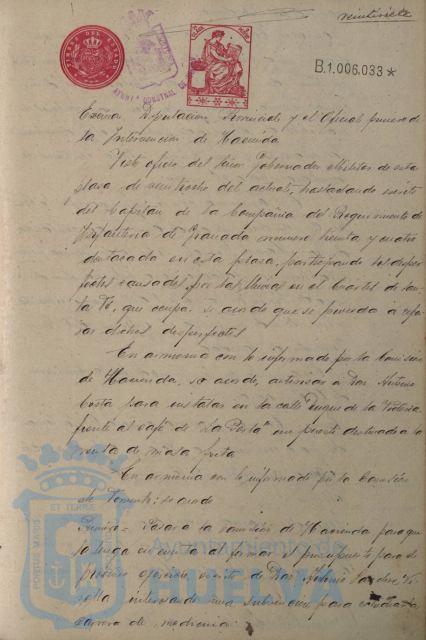 veintisiete
TIMBRE DEL ESTADO
B.1.006,033*
Excma Diputacion Provincial y el Oficial primero de
la Intervencion de Hacienda
Visto oficio del Señor Gobernador Militar de esta
plaza de veintiocho del actual, trasladando escrito
del Capitan de la Compañia del Regimiento de
Infanteria de Granada numero treinta y cuatro
destacada en esta plaza, participando los desper
fectos causados por las lluvias en el Cuartel de San
ta Fé, que ocupa: se acordó que se proceda a repa
rar dichos desperfectos
En armonia con lo informado por la Comision
de Hacienda, se acordó, autorizar a Don Antonio
Costa para instalar en la calle Duque de la Victoria
frente al café de "La Perla" un puesto destinado a la
venta de masa frita
En armonia con lo informado por la Comision
de Fomento: se acordó
Primero = Pasar a la Comision de Hacienda para que
lo tenga en cuenta al formar el presupuesto para el
proximo ejercicio, escrito de Don Antonio
interesando una subvencion para estudiar la
carrera de medicina
PORTUS MARIS ET TERRE
Ayuntamiento de
HUELVA